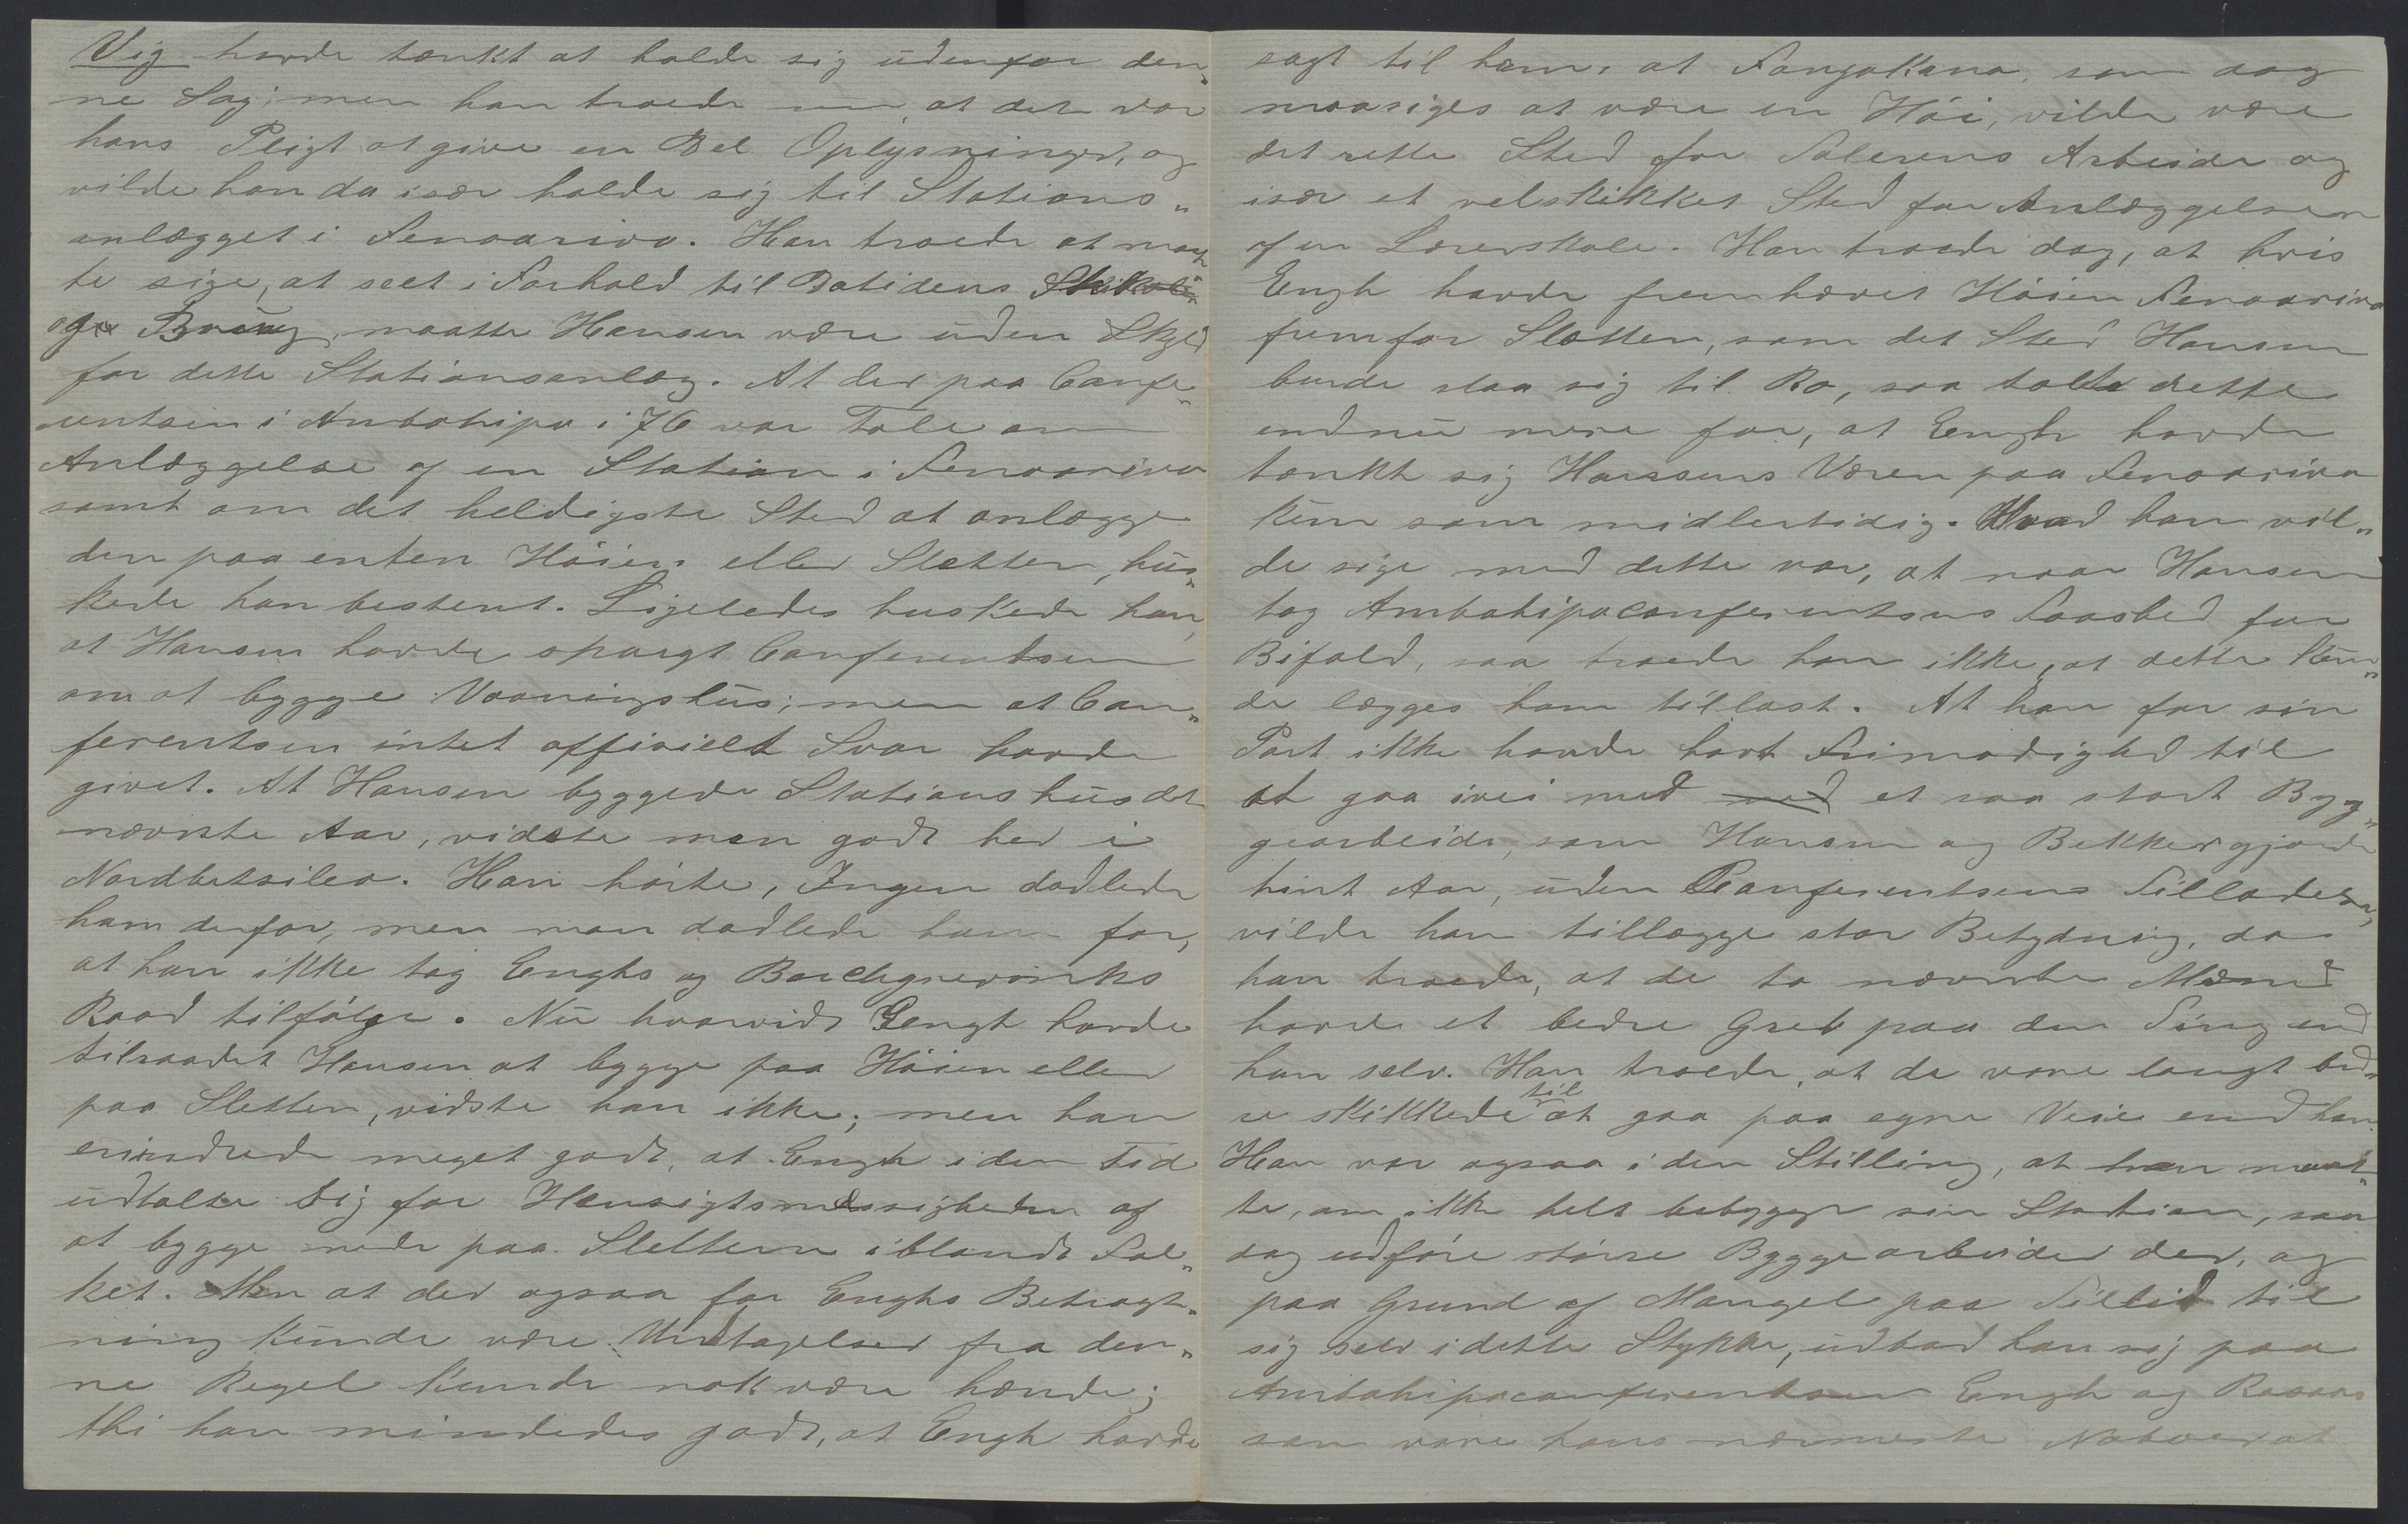 Vig havde tænkt at holde sig udenfor den„
ne Sag; men han troede nu, at det var
hans Pligt at give en Del Oplysninger, og
vilde han da især holde sig til Stations„
anlægget i Fenoarivo. Han troede at maat„
te sige, at seet i Forhold til Datidens
og Brug, maatte Hansen være uden Skyld
for dette Stationsanlæg. At der paa Confe„
rentsen i Ambohipo i 76 var Tale om
Anlæggelse af en Station i Fenoarivo
samt om det heldigste Sted at anlægge
den paa enten Høien eller Sletten, hus„
kede han bestemt. Ligeledes huskede han,
at Hansen havde spurgt Conferentsen
om at bygge Vaaningshus; men at Con„
ferentsen intet officielt Svar havde
givet. At Hansen byggede Stationshus det
nævnte Aar, vidste man godt her i
Nordbetsileo. Han hørte, Ingen dadlede
ham derfor, men man dadlede ham for,
at han ikke tog Enghs og Borchgrevinks
Raad tilfølge. Nu hvorvidt Engh havde
tilraadet Hansen at bygge paa Høien eller
paa Sletten, vidste han ikke; men han
erindrede meget godt, at Engh i den Tid
udtalte sig for Hensigtsmæssigheden af
at bygge nede paa Sletten iblandt Fol„
ket. Men at der ogsaa for Enghs Betragt„
ning kunde være Undtagelser fra den„
ne Regel kunde nok være hænde;
thi han mindedes godt, at Engh havde
sagt til ham, at Fangakana, som dog
maa siges at være en Høi, vilde være
det rette Sted for Arbeide og
især et velskikket Sted for Anlæggelsen
af en Lærerskole. Han troede dog, at hvis
Engh havde fremhævet Høien Fenoarivo
fremfor Sletten, som det Sted Hansen
burde slaa sig til Ro, saa talte dette
endnu mere for, at Engh havde
tænkt sig Hansens Væren paa Fenoarivo
kun som midlertidig. Hvad han vil„
de sige med dette var, at naar Hansen
tog Ambohipoconferentsens Taushed for
Bifald, saa troede han ikke, at dette kun„
de lægges ham tillast. At han for sin
Part ikke havde havt Frimodighed til
at gaa ivei med med et saa stort Byg„
gearbeide, som Hansen og Bekker gjorde
hint Aar, uden Conferentsens Tilladelse,
vilde han tillægge stor Betydning, da
han troede, at de to nævnte Mænd
havde et bedre Greb paa den Ting end
han selv. Han troede, at de vare langt bed„
re skikkede til at gaa paa egne Veie end han.
Han var ogsaa i den Stilling, at han maat„
te, om ikke helt bebygge sin Station, saa
dog udføre større Byggearbeider der, og
paa Grund af Mangel paa Tillid til
sig selv i dette Stykke, udbad han sig paa
Ambohipoconferentsen Engh og Rosaas
som vare hans nærmeste Naboer at